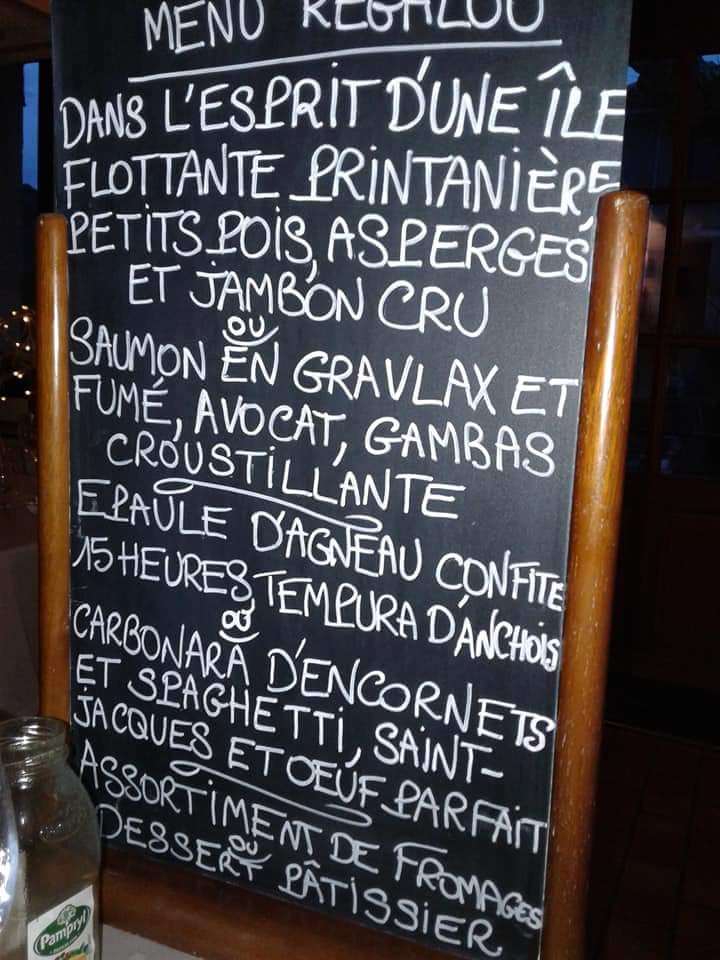 MENU REGALOU
DANS L'ESPRIT D'UNE ÎLE
FLOTTANTE PRINTANIÈRE,
PETITS POIS, ASPERGES
ET JAMBON CRU
OU
SAUMON EN GRAVLAX ET
FUMÉ, AVOCAT, GAMBAS
CROUSTILLANTE
EPAULE D'AGNEAU CONFITE
15 HEURES TEMPURA D'ANCHOIS
OU
CARBONARA D'ENCORNETS
ET SPAGHETTI, SAINT-
JACQUES ET OEUF PARFAIT
ASSORTIMENT DE FROMAGES
OU
DESSERT PÂTISSIER
Pampryl